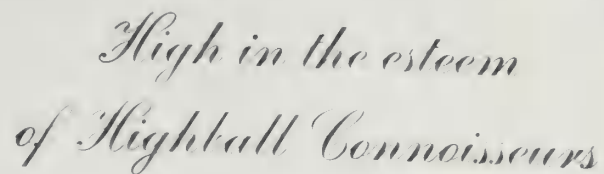 High in the esteem
of Highball Connoisseurs